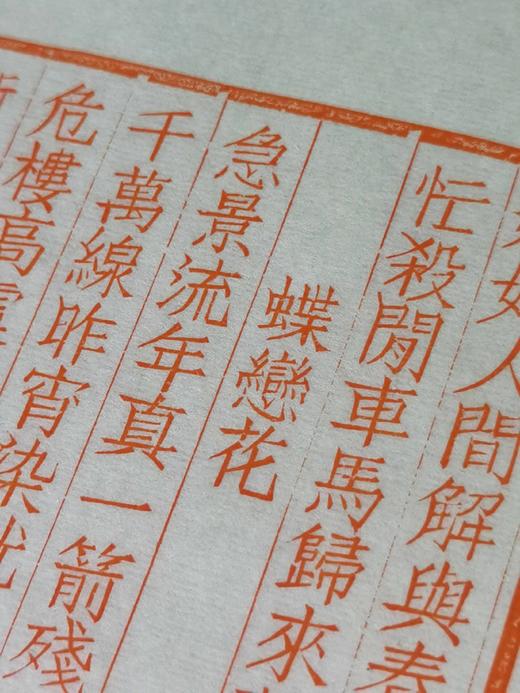 如人間解與
忙殺閒車馬歸來
蝶戀花
急景流年真一箭殘
千萬線昨宵染就
危樓高處